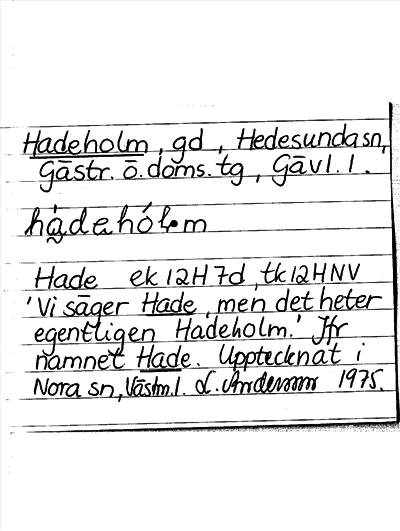 Hadeholm, gd, Hedesunda sn,
Gästr. ö. doms. tg, Gävl. l.
hàdehól.m
Hade ek 12H7d, tk 12HNV
'Vi säger Hade, men det heter
egentligen Hadeholm.' Jfr
namnet Hade. Upptecknat i
Nora sn, Västm. l. L. Andersson 1975.